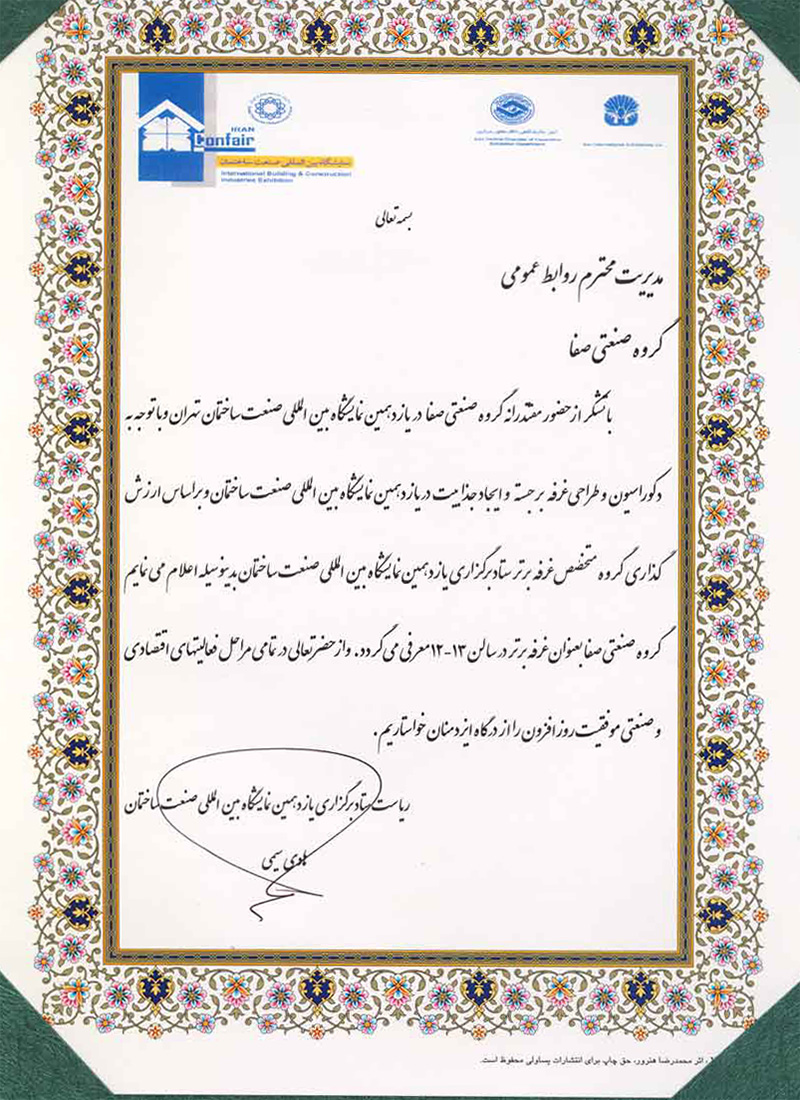 IRAN
Confair
نمایشگاه بین المللی صنعت ساختمان
International Building & Construction
Industries Exhibition
Iran International Exhibitions Co.
بسمه تعالی
مدیریت محترم روابط عمومی
گروه صنعتی صفا
باتشکر از حضور مقتدرانه گروه صنعتی صفا در یازدهمین نمایشگاه بین المللی صنعت ساختمان تهران و با توجه به
دکوراسیون و طراحی غرفه برجسته و ایجاد جذابیت در یازدهمین نمایشگاه بین المللی صنعت ساختمان و براساس ارزش
گذاری گروه متخصص غرفه برتر ستاد برگزاری یازدهمین نمایشگاه بین المللی صنعت ساختمان بدینوسیله اعلام می نمایم
گروه صنعتی صفا بعنوان غرفه برتر در سالن ۱۳-۱۲ معرفی می گردد. و از حضرتعالی در تمامی مراحل فعالیتهای اقتصادی
و صنعتی موفقیت روز افزون را از درگاه ایزد منان خواستاریم.
ریاست ستاد برگزاری یازدهمین نمایشگاه بین المللی صنعت ساختمان
هادی سیمی
اثر محمدرضا هنرور، حق چاپ برای انتشارات یساولی محفوظ است.